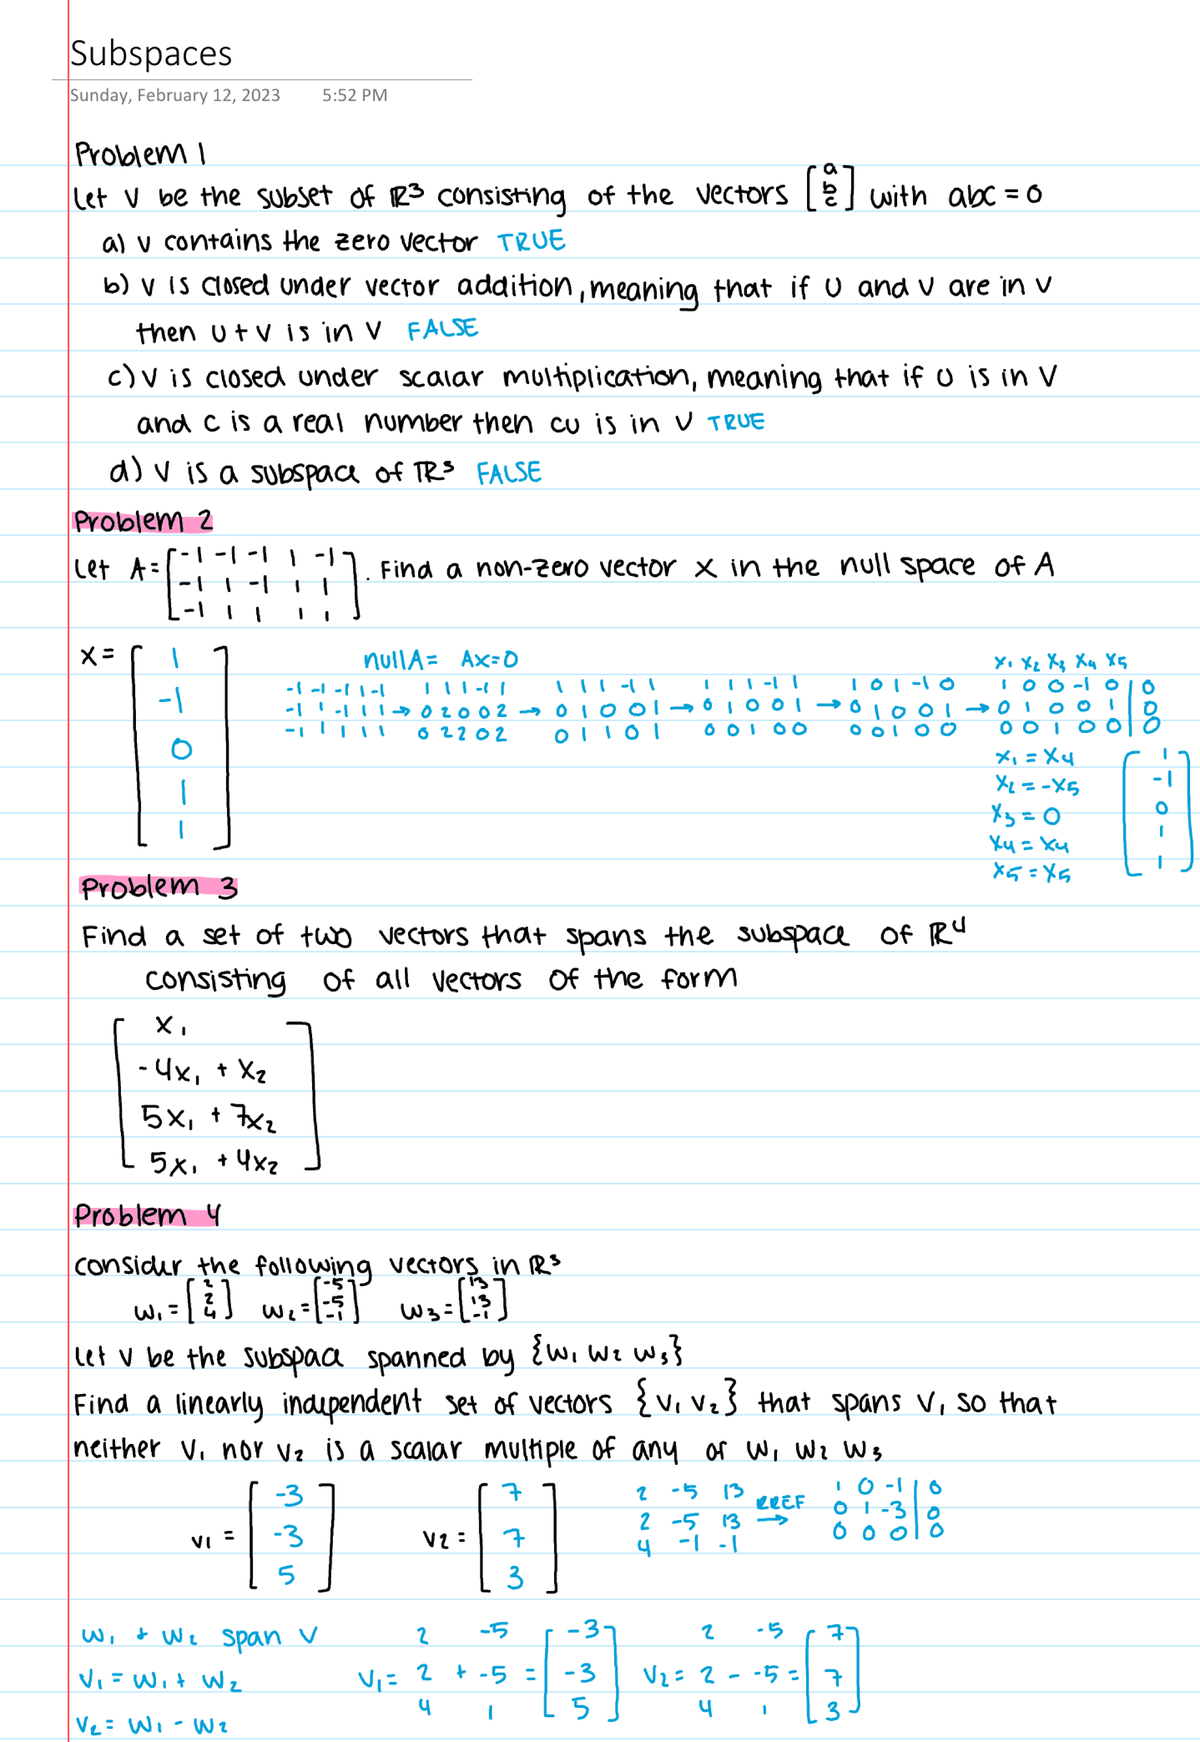 Subspaces
Sunday, February 12, 2023 5:52 PM
Problem 1
Let V be the subset of ℝ3 consisting of the vectors [a b c] with abc = 0
a) V contains the zero vector TRUE
b) V is closed under vector addition, meaning that if U and V are in V
then U + V is in V FALSE
c) V is closed under scalar multiplication, meaning that if U is in V
and c is a real number then cu is in V TRUE
d) V is a subspace of ℝ3 FALSE
Problem 2
Let A = [-1 -1 -1 1 -1
-1 1 -1 1 1
-1 1 1 1 1]. Find a non-zero vector x in the null space of A
X = [1 -1 0 1 1]
null A = Ax=0
X1 X2 X3 X4 X5
-1 -1 -1 1 -1 1 1 1 -1 1 1 1 1 -1 1 1 1 1 -1 1 1 0 1 -1 0 1 0 0 -1 0 | 0
-1 1 -1 1 1 → 0 2 0 0 2 → 0 1 0 0 1 → 0 1 0 0 1 → 0 1 0 0 1 → 0 1 0 0 1 | 0
-1 1 1 1 1 0 2 2 0 2 0 1 1 0 1 0 0 1 0 0 0 0 1 0 0 0 0 1 0 0 | 0
X1 = X4
X2 = -X5
X3 = 0
X4 = X4
X5 = X5
[1 -1 0 1 1]
Problem 3
Find a set of two vectors that spans the subspace of ℝ4
consisting of all vectors of the form
[x1
-4x1 + x2
5x1 + 7x2
5x1 + 4x2]
Problem 4
consider the following vectors in ℝ3
W1 = [2 2 4] W2 = [-5 -5 -1] W3 = [13 13 -1]
Let V be the subspace spanned by {W1 W2 W3}
Find a linearly independent set of vectors {V1 V2} that spans V, so that
neither V1 nor V2 is a scalar multiple of any of W1 W2 W3
V1 = [-3 -3 5] V2 = [7 7 3]
2 -5 13 1 0 -1 | 0
2 -5 13 RREF → 0 1 -3 | 0
4 -1 -1 0 0 0 | 0
W1 + W2 span V
V1 = W1 + W2
V2 = W1 - W2
2 -5 [-3
V1 = 2 + -5 = -3
4 1 5]
2 -5 [7
V2 = 2 - -5 = 7
4 1 3]